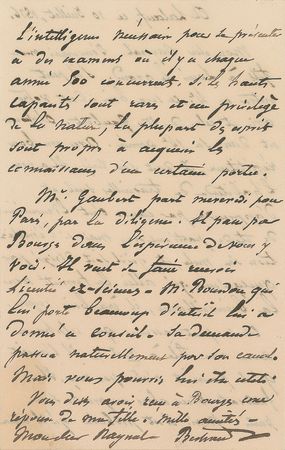 L'intelligence nécessaire pour se présenter
à des examens où il y a chaque
année 500 concurrents. Si les hautes
capacités sont rares et un privilège
de la nature, la plupart des esprits
sont propres à acquérir les
connaissances d'un certaine portée.
Mr. Gaubert part mercredi pour
Paris, par la diligence. Il passe par
Bourges dans l'espérance de vous y
voir. Il veut se faire recevoir
licencié ez-sciences. Mr. Bourdon qui
lui porte beaucoup d'intérêt lui a
donné ce conseil. Sa demande
passera naturellement par son canal.
Mais vous pourrez lui être utile.
Vous devez avoir reçu à Bourges une
réponse de ma fille. Mille amitiés.
Mon cher Raynal